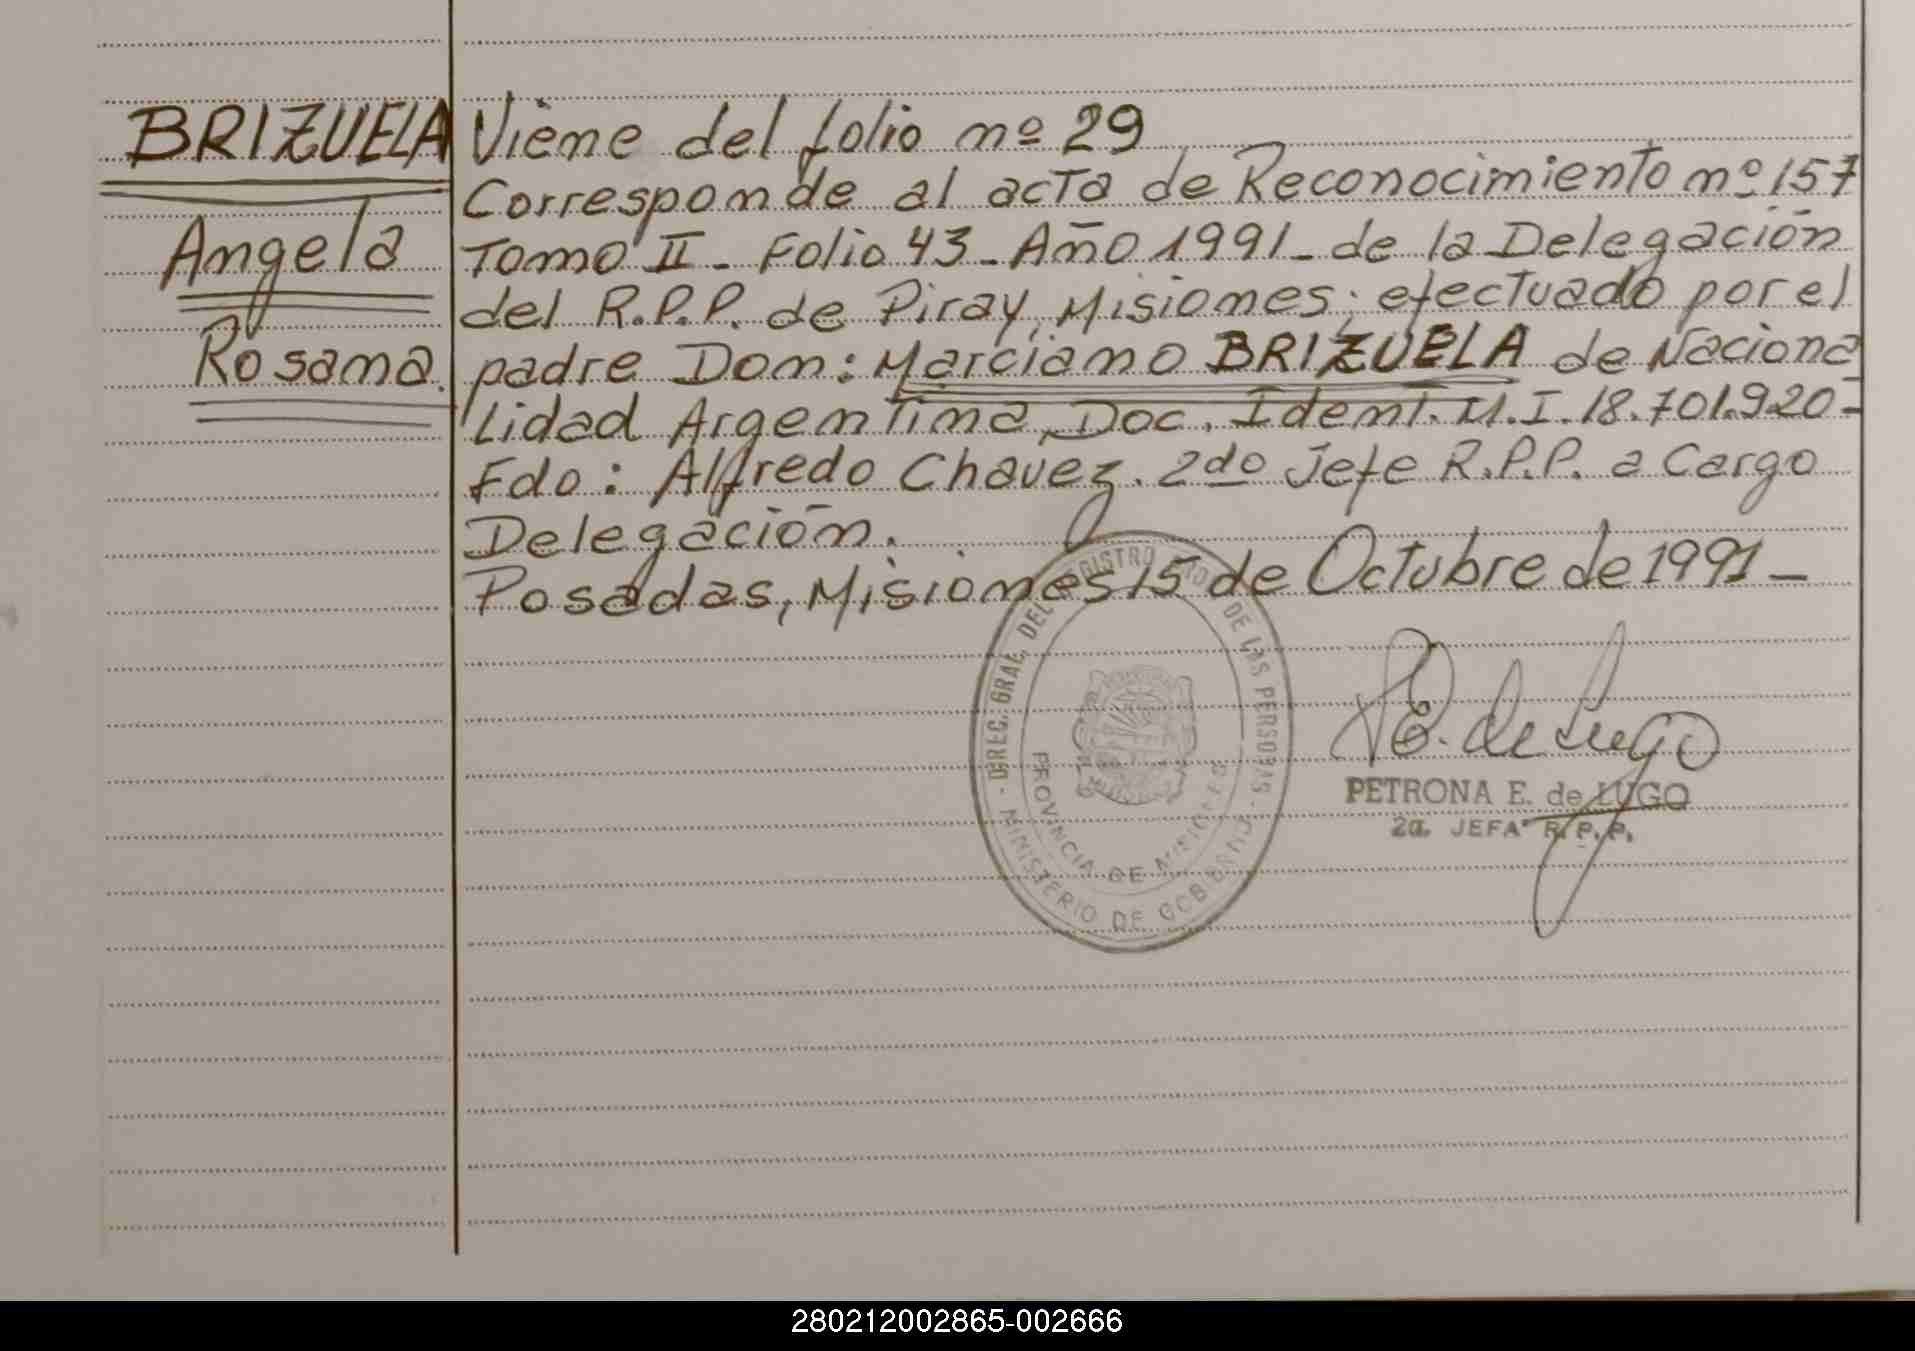 BRIZUELA
Angela
Rosana.
Viene del folio nº 29
Corresponde al acta de Reconocimiento nº 157
Tomo II - Folio 43 - Año 1991 - de la Delegación
del R.P.P. de Piray, Misiones; efectuado por el
padre Don: Marciano BRIZUELA de Naciona
lidad Argentina, Doc. Ident. M.I. 18.701.920-
Fdo: Alfredo Chavez. 2do Jefe R.P.P. a Cargo
Delegación.
Posadas, Misiones 15 de Octubre de 1991 -
- DIREC. GRAL. DEL REGISTRO PROV. DE LAS PERSONAS -
PROVINCIA DE MISIONES
MINISTERIO DE GOBIERNO
P E. de Lugo
PETRONA E. de LUGO
2a. JEFA R.P.P.
280212002865-002666